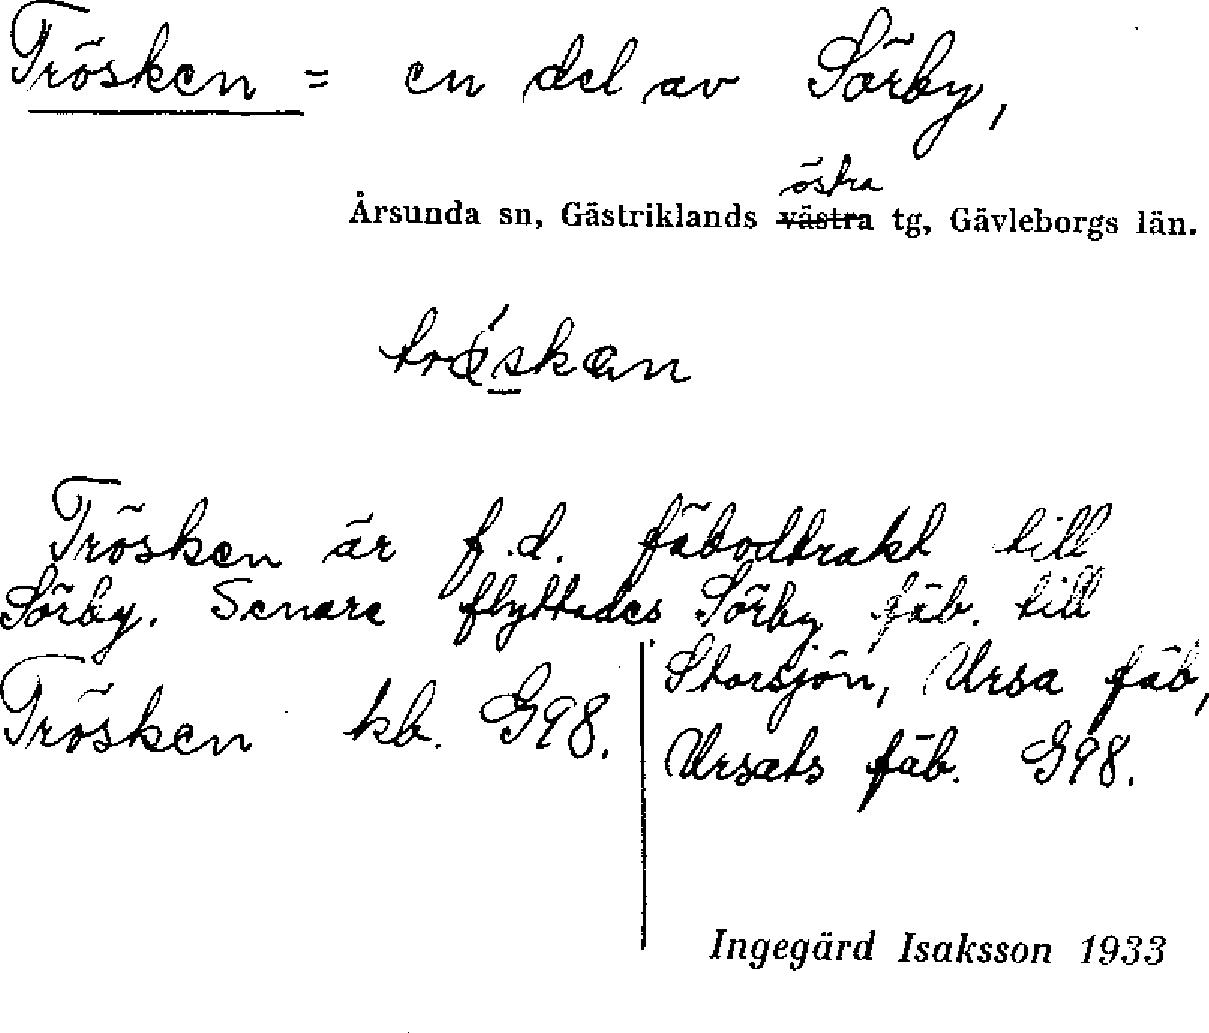 Trösken = en del av Sörby,
östra
Årsunda sn, Gästriklands västra tg, Gävleborgs län.
Trösken är f.d. fäbodtrakt till
Sörby. Senare flyttades Sörby fäb. till
Storsjön, Ursa fäb,
Trösken kb. G98.
Ursats fäb. G98.
Ingegärd Isaksson 1933